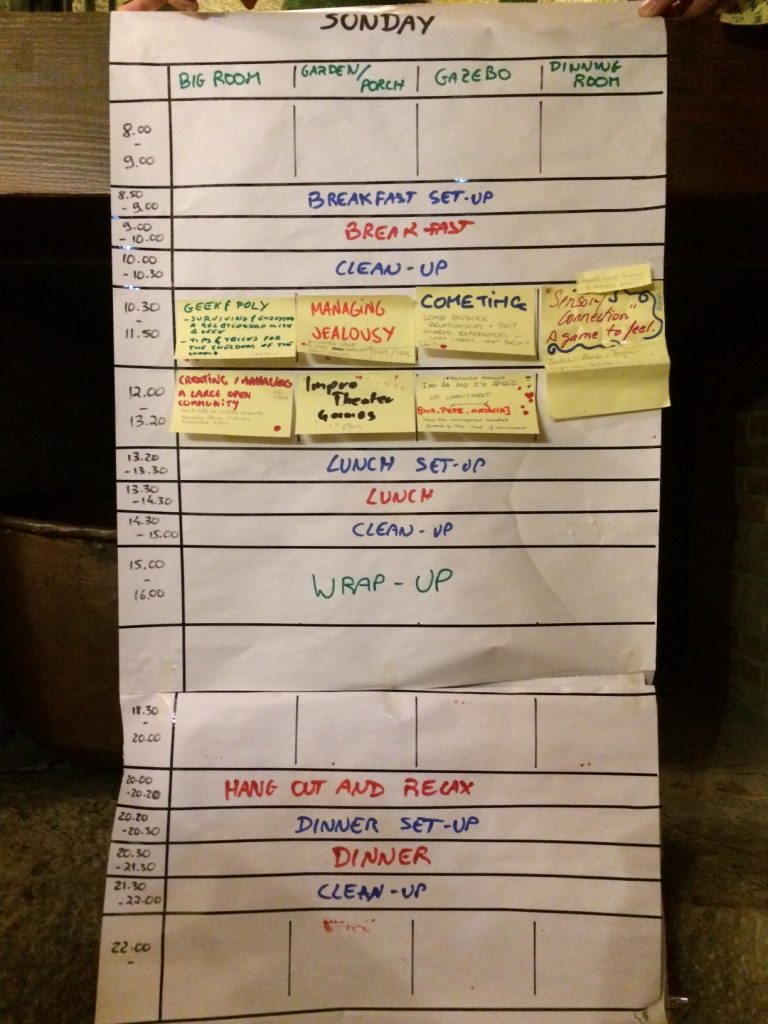 SUNDAY
BIG ROOM
GARDEN/
PORCH
GAZEBO
DINNING
ROOM
8.00
-
9.00
8.50
- 9.00
BREAKFAST SET-UP
9.00
- 10.00
BREAKFAST
10.00
- 10.30
CLEAN-UP
10.30
-
11.50
GEEK & POLY
- SURVIVING & ENJOYING
A RELATIONSHIP WITH
A GEEK
- TIPS & TRICKS FOR
THE SHELDONS OF THE
WORLD
MANAGING
JEALOUSY
COMETING
LONG DISTANCE
RELATIONSHIPS + POLY
SHARED EXPERIENCES -
"Sensory
Connection"
A game to feel.
12.00
-
13.20
CREATING / MANAGING
A LARGE OPEN
COMMUNITY
Impro
Theater
Games
I AM RA AND I'M AFRAID
OF COMMITMENT
13.20
- 13.30
LUNCH SET-UP
13.30
- 14.30
LUNCH
14.30
- 15.00
CLEAN-UP
15.00
-
16.00
WRAP-UP
18.30
-
20.00
20.00
- 20.20
HANG OUT AND RELAX
20.20
- 20.30
DINNER SET-UP
20.30
- 21.30
DINNER
21.30
- 22.00
CLEAN-UP
22.00
-